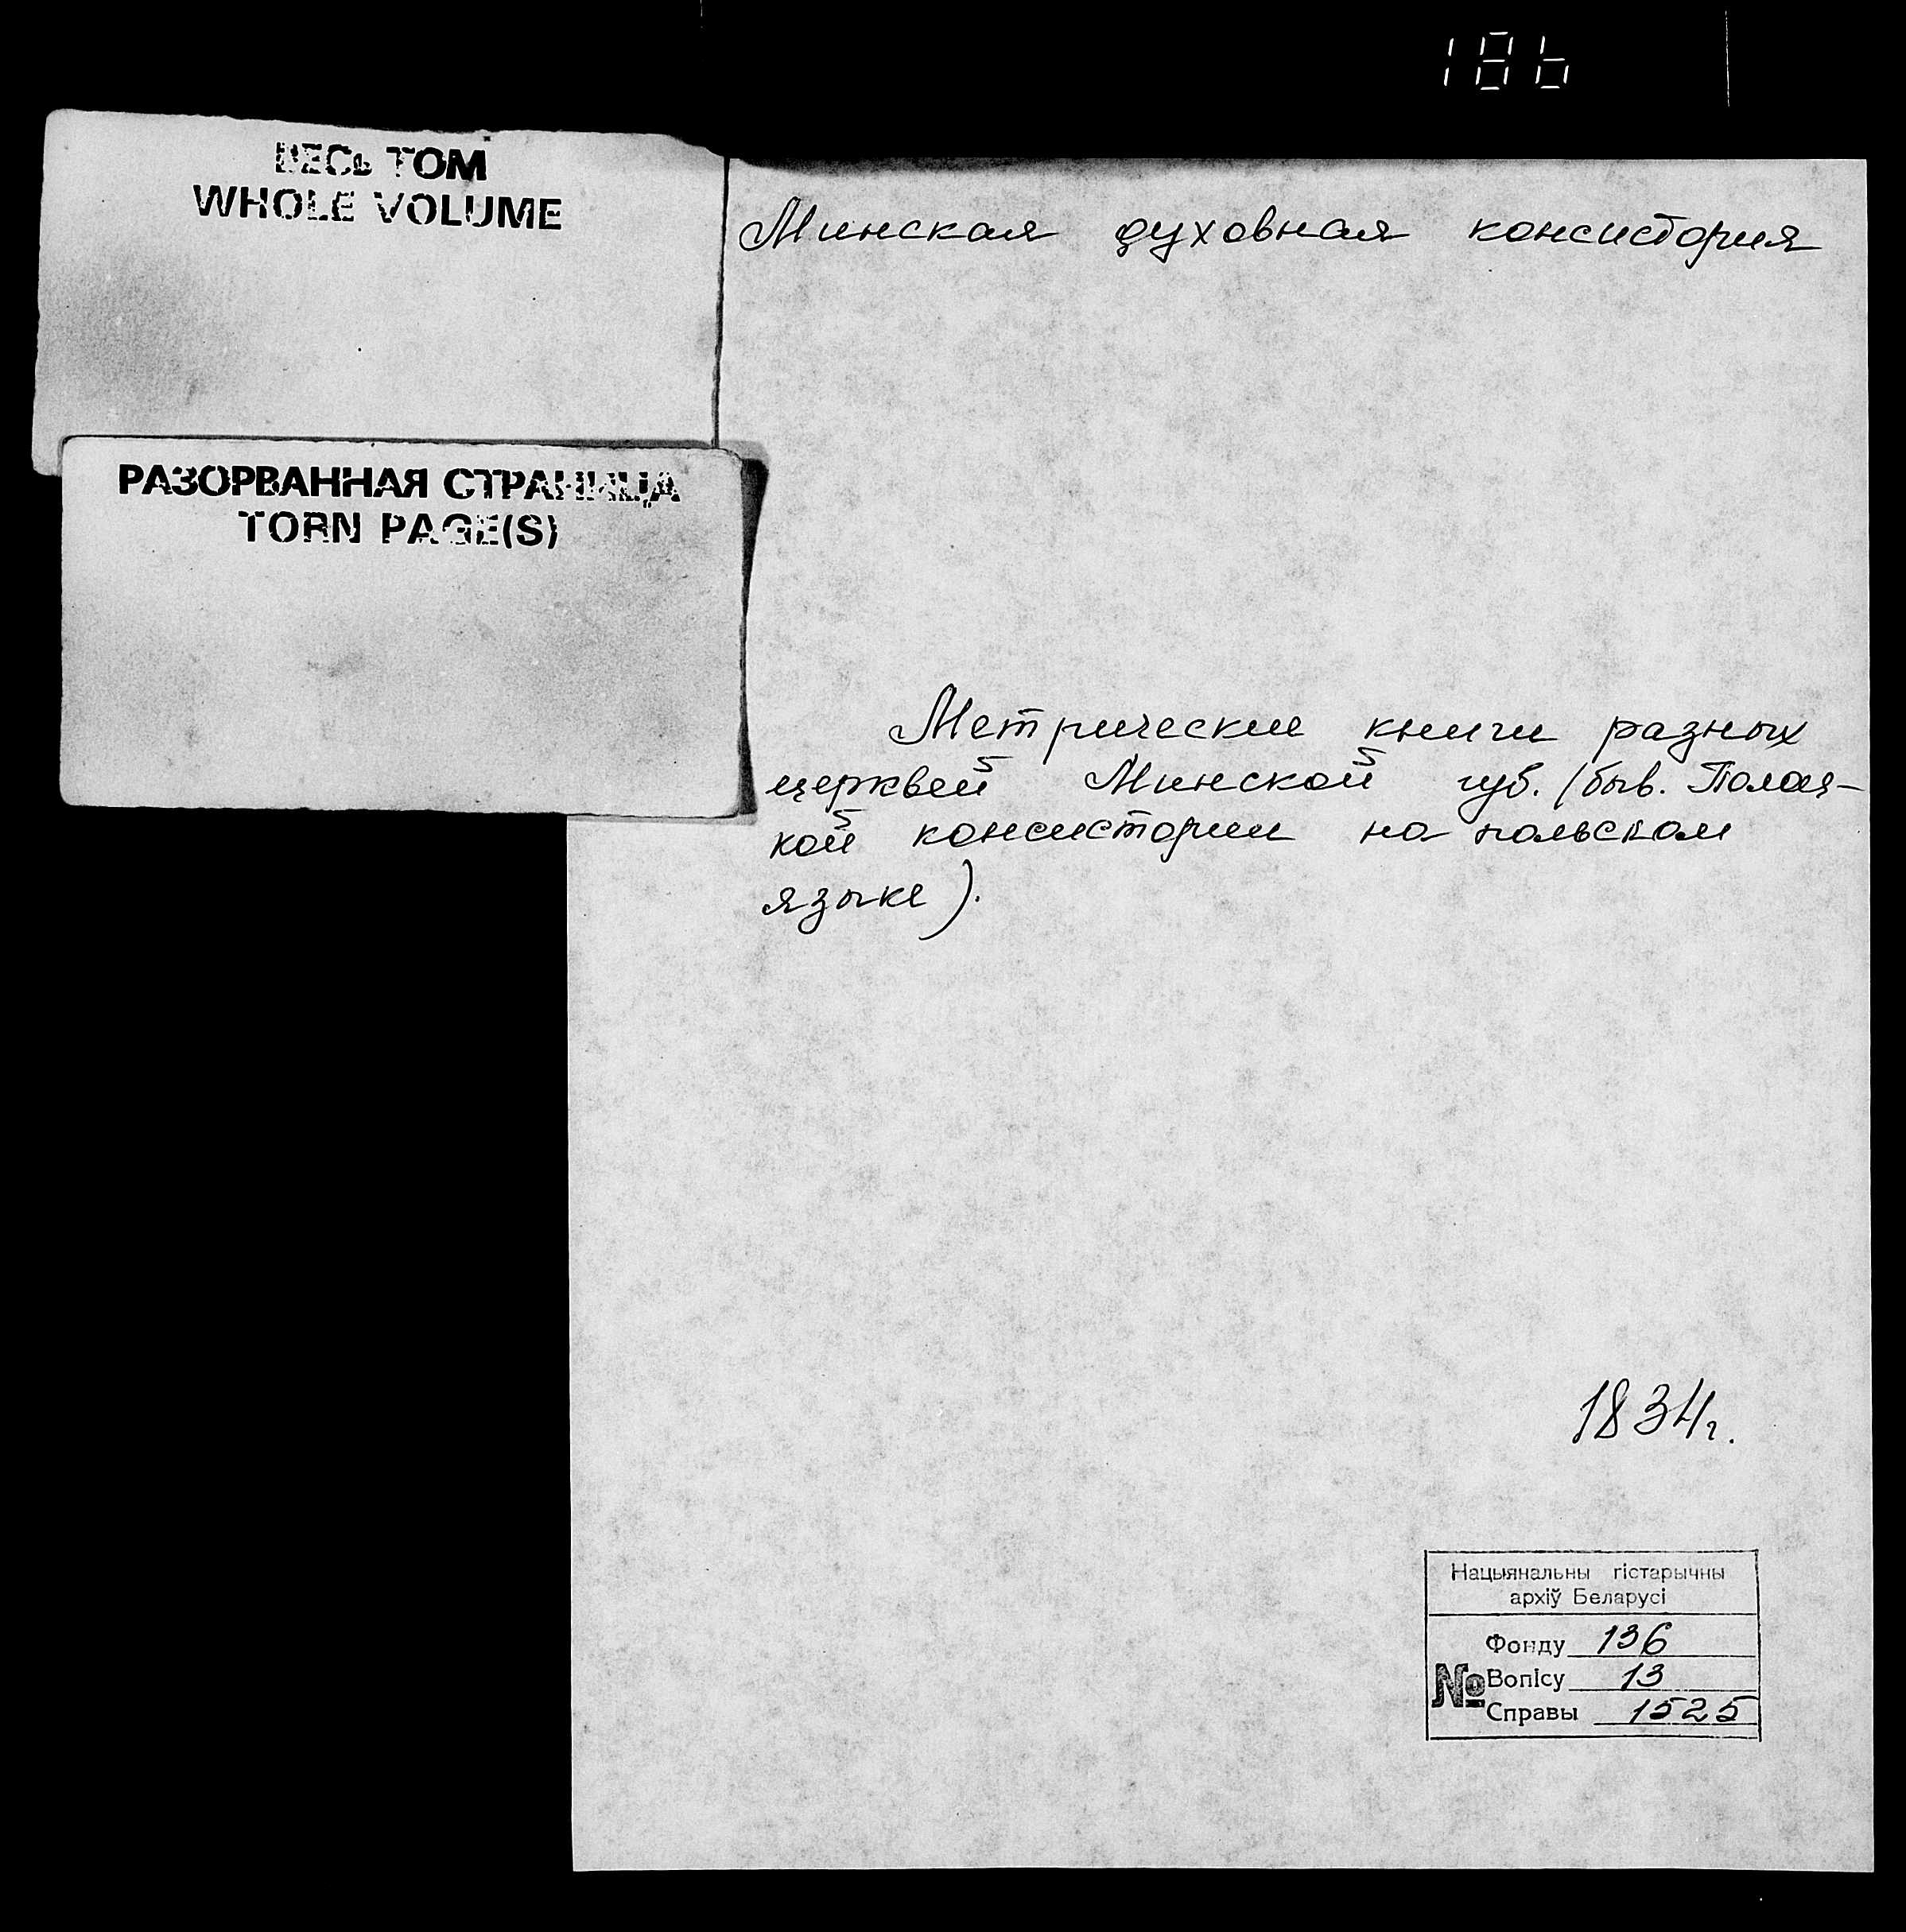 186
ВЕСЬ ТОМ
WHOLE VOLUME
РАЗОРВАННАЯ СТРАНИЦА
TORN PAGE(S)
Минская духовная консистория
Метрические книги разных
церквей Минской губ. (быв.
кой консистории на польском
языке).
1834г.
Нацыянальны гістарычны
архіў Беларусі
Фонду 136
№ Вопісу 13
Справы 1525